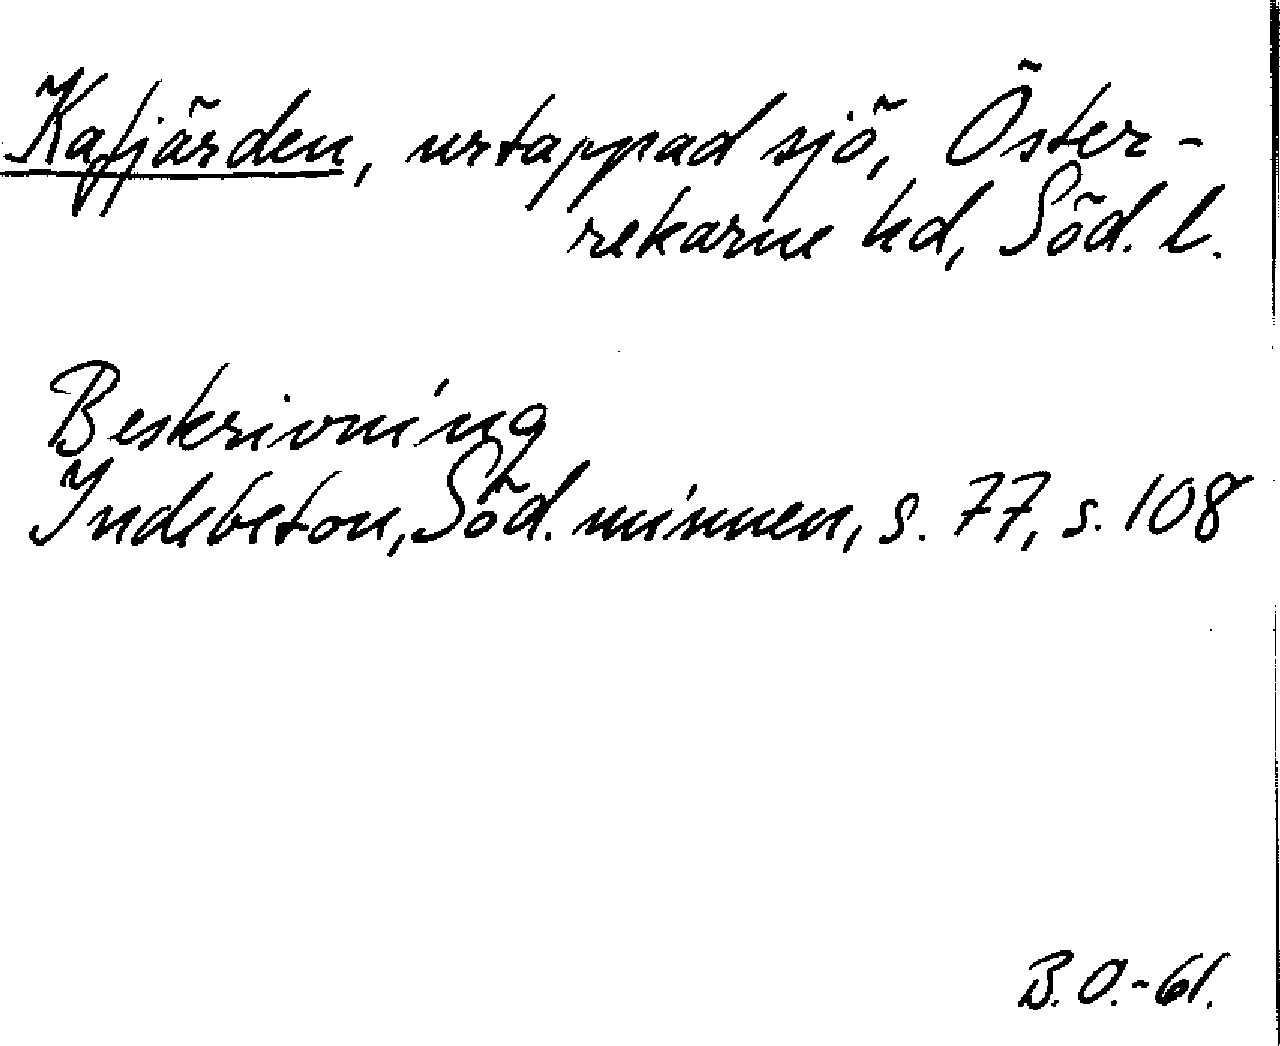 Kafjärden, urtappad sjö, Öster-
rekarne hd, Söd. l.
Beskrivning
Indebetou, Söd. minnen, s. 77, s. 108
B.O.-61.